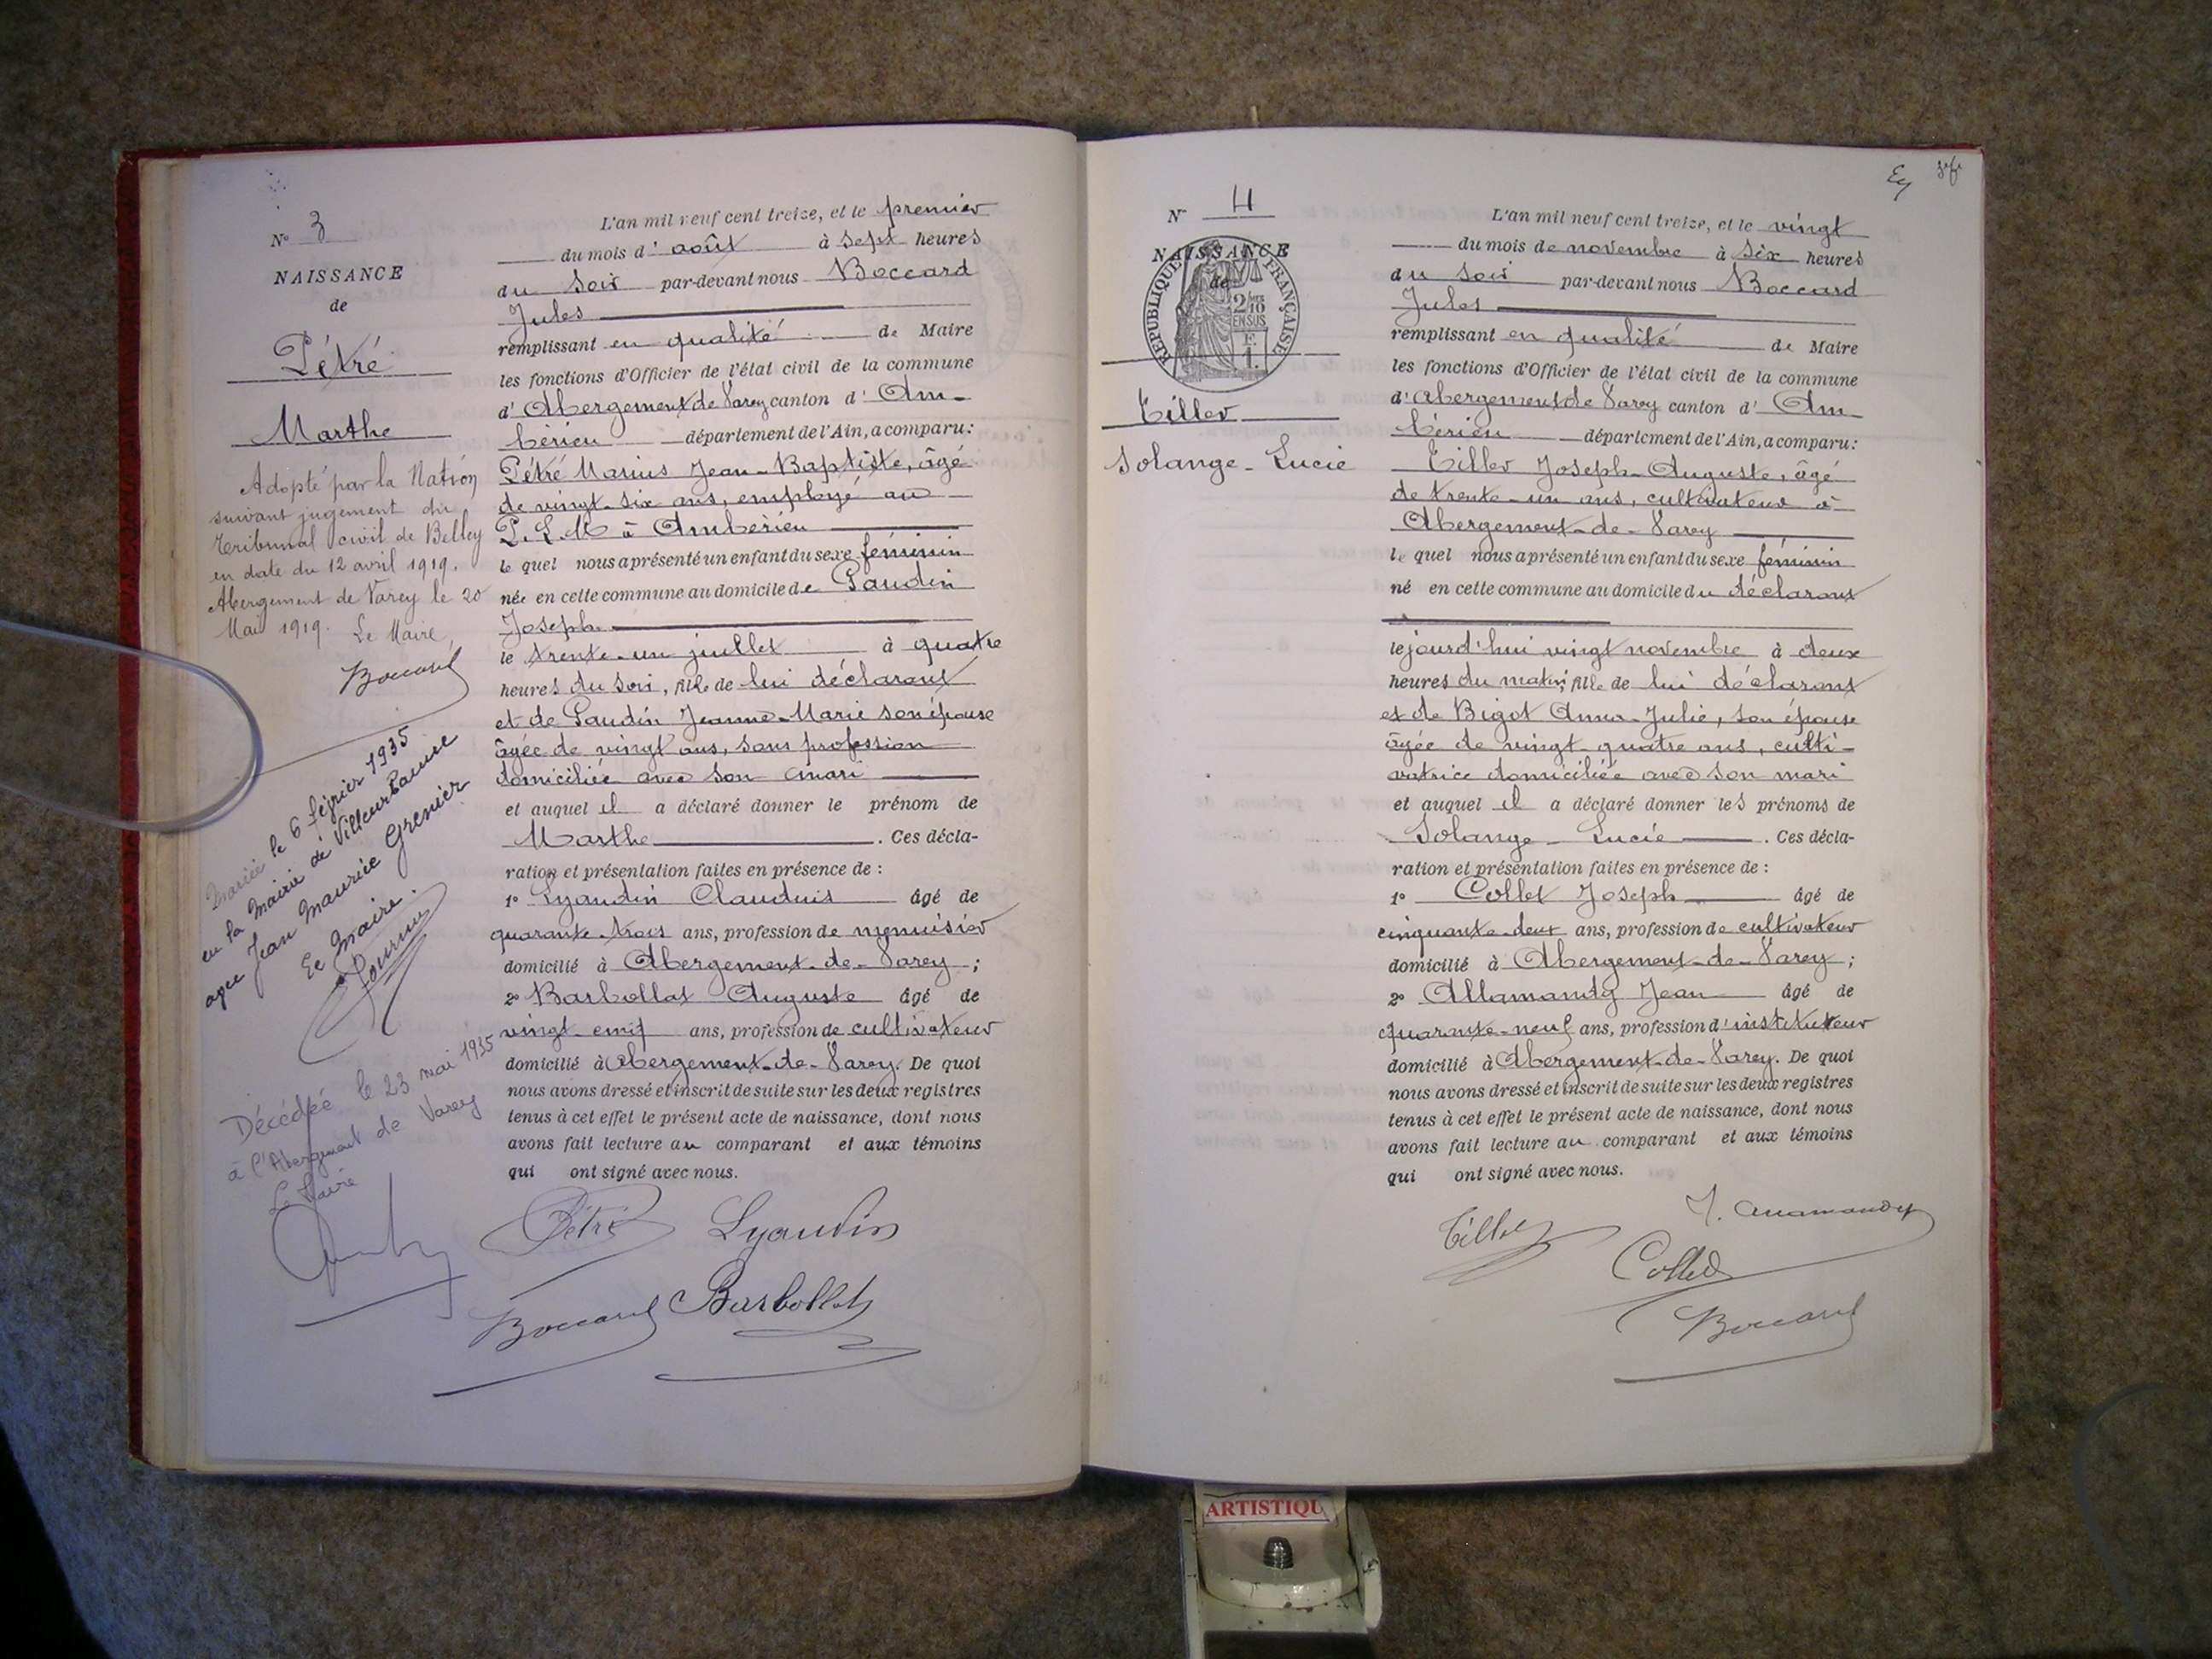 N° 3
NAISSANCE
de
Pétré
Marthe
Adopté par la Nation
suivant jugement du
Tribunal civil de Belley
en date du 12 avril 1919.
Abergement de Varey le 20
Mai 1919. Le Maire,
Boccard
Mariée le 6 février 1935
en la Mairie de Villeurbanne
avec Jean Maurice Grenier
Le Maire.
Décédée le 23 mai 1935
à l'Abergement de Varey
Le Maire
L'an mil neuf cent treize, et le premier
du mois d' août à sept heures
du soir par-devant nous Boccard
Jules
remplissant en qualité de Maire
les fonctions d'Officier de l'état civil de la commune
d' Abergement de Varey canton d' Am-
bérieu département de l'Ain, a comparu:
Pétré Marius Jean-Baptiste, âgé
de vingt-six ans, employé au
P.L.M. à Ambérieu
le quel nous a présenté un enfant du sexe féminin
née en cette commune au domicile de Gaudin
Joseph
le trente-un juillet à quatre
heures du soir, fille de lui déclarant
et de Gaudin Jeanne-Marie son épouse
âgée de vingt ans, sans profession
domiciliée avec son mari
et auquel il a déclaré donner le prénom de
Marthe . Ces décla-
ration et présentation faites en présence de :
1° Lyaudin Claudius âgé de
quarante-trois ans, profession de menuisier
domicilié à Abergement-de-Varey ;
2° Barbollat Auguste âgé de
vingt ans, profession de cultivateur
domicilié à Abergement-de-Varey. De quoi
nous avons dressé et inscrit de suite sur les deux registres
tenus à cet effet le présent acte de naissance, dont nous
avons fait lecture au comparant et aux témoins
qui ont signé avec nous.
Pétré Lyaudin
Boccard Barbollat
N° 4
NAISSANCE
de
RÉPUBLIQUE FRANÇAISE
2/10
EN SUS
F.
1.
Tiller
Solange-Lucie
L'an mil neuf cent treize, et le vingt
du mois de novembre à six heures
du soir par-devant nous Boccard
Jules
remplissant en qualité de Maire
les fonctions d'Officier de l'état civil de la commune
d' Abergement de Varey canton d' Am
bérieu département de l'Ain, a comparu:
Tiller Joseph-Auguste, âgé
de trente-un ans, cultivateur à
Abergement-de-Varey
le quel nous a présenté un enfant du sexe féminin
né en cette commune au domicile du déclarant
le jourd'hui vingt novembre à deux
heures du matin, fille de lui déclarant
et de Bigot Anna-Julie, son épouse
âgée de vingt-quatre ans, culti-
vatrice domiciliée avec son mari
et auquel il a déclaré donner les prénoms de
Solange-Lucie . Ces décla-
ration et présentation faites en présence de :
1° Collet Joseph âgé de
cinquante-deux ans, profession de cultivateur
domicilié à Abergement-de-Varey ;
2° Allamandy Jean âgé de
quarante-neuf ans, profession d'instituteur
domicilié à Abergement-de-Varey. De quoi
nous avons dressé et inscrit de suite sur les deux registres
tenus à cet effet le présent acte de naissance, dont nous
avons fait lecture au comparant et aux témoins
qui ont signé avec nous.
Tiller J. Allamandy
Collet
Boccard
ARTISTIQU